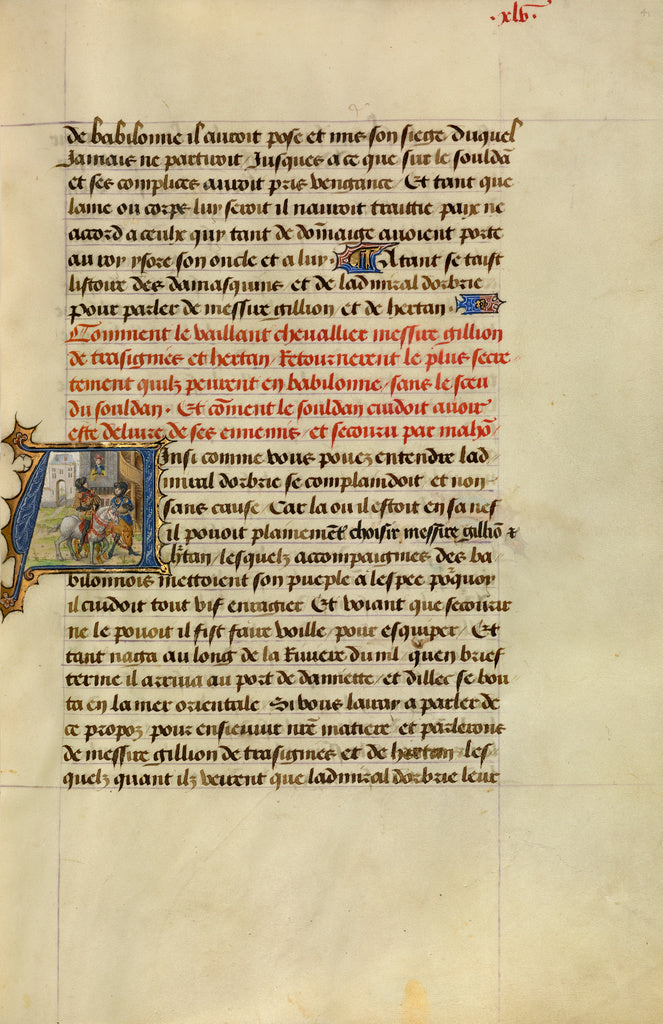 .xlv.
de babilonne il auroit pose et mis son siege duquel
Jamais ne partiroit / Jusques a ce que sur le souldā
et ses complices auroit pris vengance / Et tant que
lame ou corps luy seroit il nauroit traittie paix ne
accord a ceulx quy tant de dom̄aige auoient porte
au roy ysore son oncle et a luy · A tant se taist
listoire des damasquins et de ladmiral dorbrie
pour parler de messire gillion et de hertan ·
Comment le vaillant chevallier messire gillion
de trasignies et hertan / Retournerent le plus secre
tement quilz peurent en babilonne / sans le sceu
du souldan · Et com̄ent le souldan cuidoit auoir
este deliure de ses ennemis / et secouru par mahō
Ainsi comme vous pouez entendre lad
miral dorbrie se complaindoit et non
sans cause / Car la ou il estoit en sa nef
il pouoit plainement choisir messire gilliō &
h̄tan / lesquelz accompaignies des ba
bilonnois mettoient son pueple a lespee po͛quoy
il cuidoit tout vif enragier Et voiant que secourir
ne le pouoit il fist faire voille / pour esquiper / Et
tant naga au long de la Riuiere du nil / quen brief
terme il arriua au port de damiette / et dillec se bou
ta en la mer orientale / Si vous lairay a parler de
ce propoz pour ensieuuir nr̄e matiere et parlerons
de messire gillion de trasignies et de hertan les
quelz quant ilz veirent que ladmiral dorbrie leur